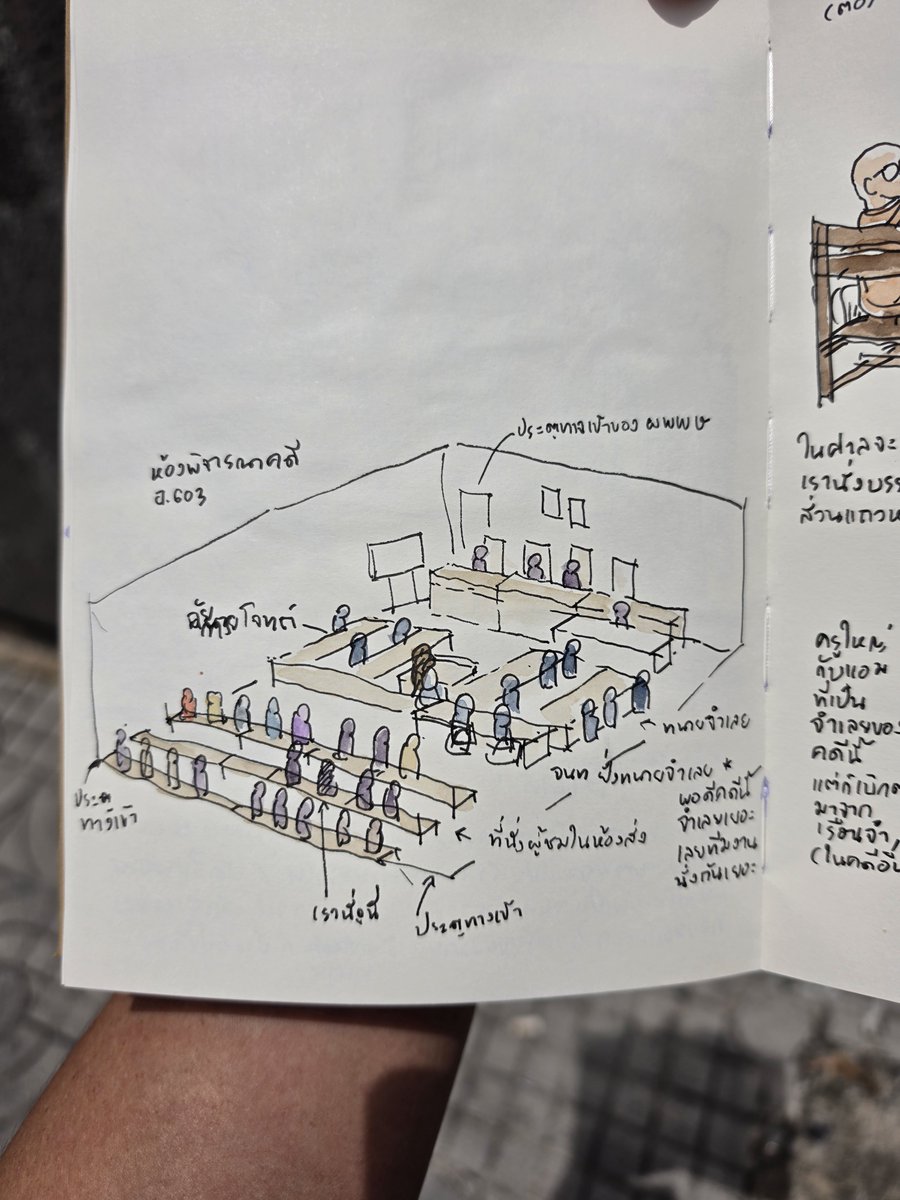 (ต่อ)
ห้องพิจารณาคดี
อ.603
ประตูทางเข้าของ
โจทก์
ทนายจำเลย
จนท ฝั่งทนายจำเลย *
พอดีคดีนี้
จำเลยเยอะ
เลยทีมงาน
นั่งกันเยอะ
ที่นั่งผู้ชมในห้องส่ง
ประตู
ทางเข้า
เรานั่งนี่
ประตูทางเข้า
ในศาลจะ
เรานั่ง
ส่วนแถวห
ครูใหญ่
กับแอม
ที่เป็น
จำเลยของ
คดีนี้
แต่ก็เบิกต
มาจาก
เรือนจำ
(ในคดีอื่